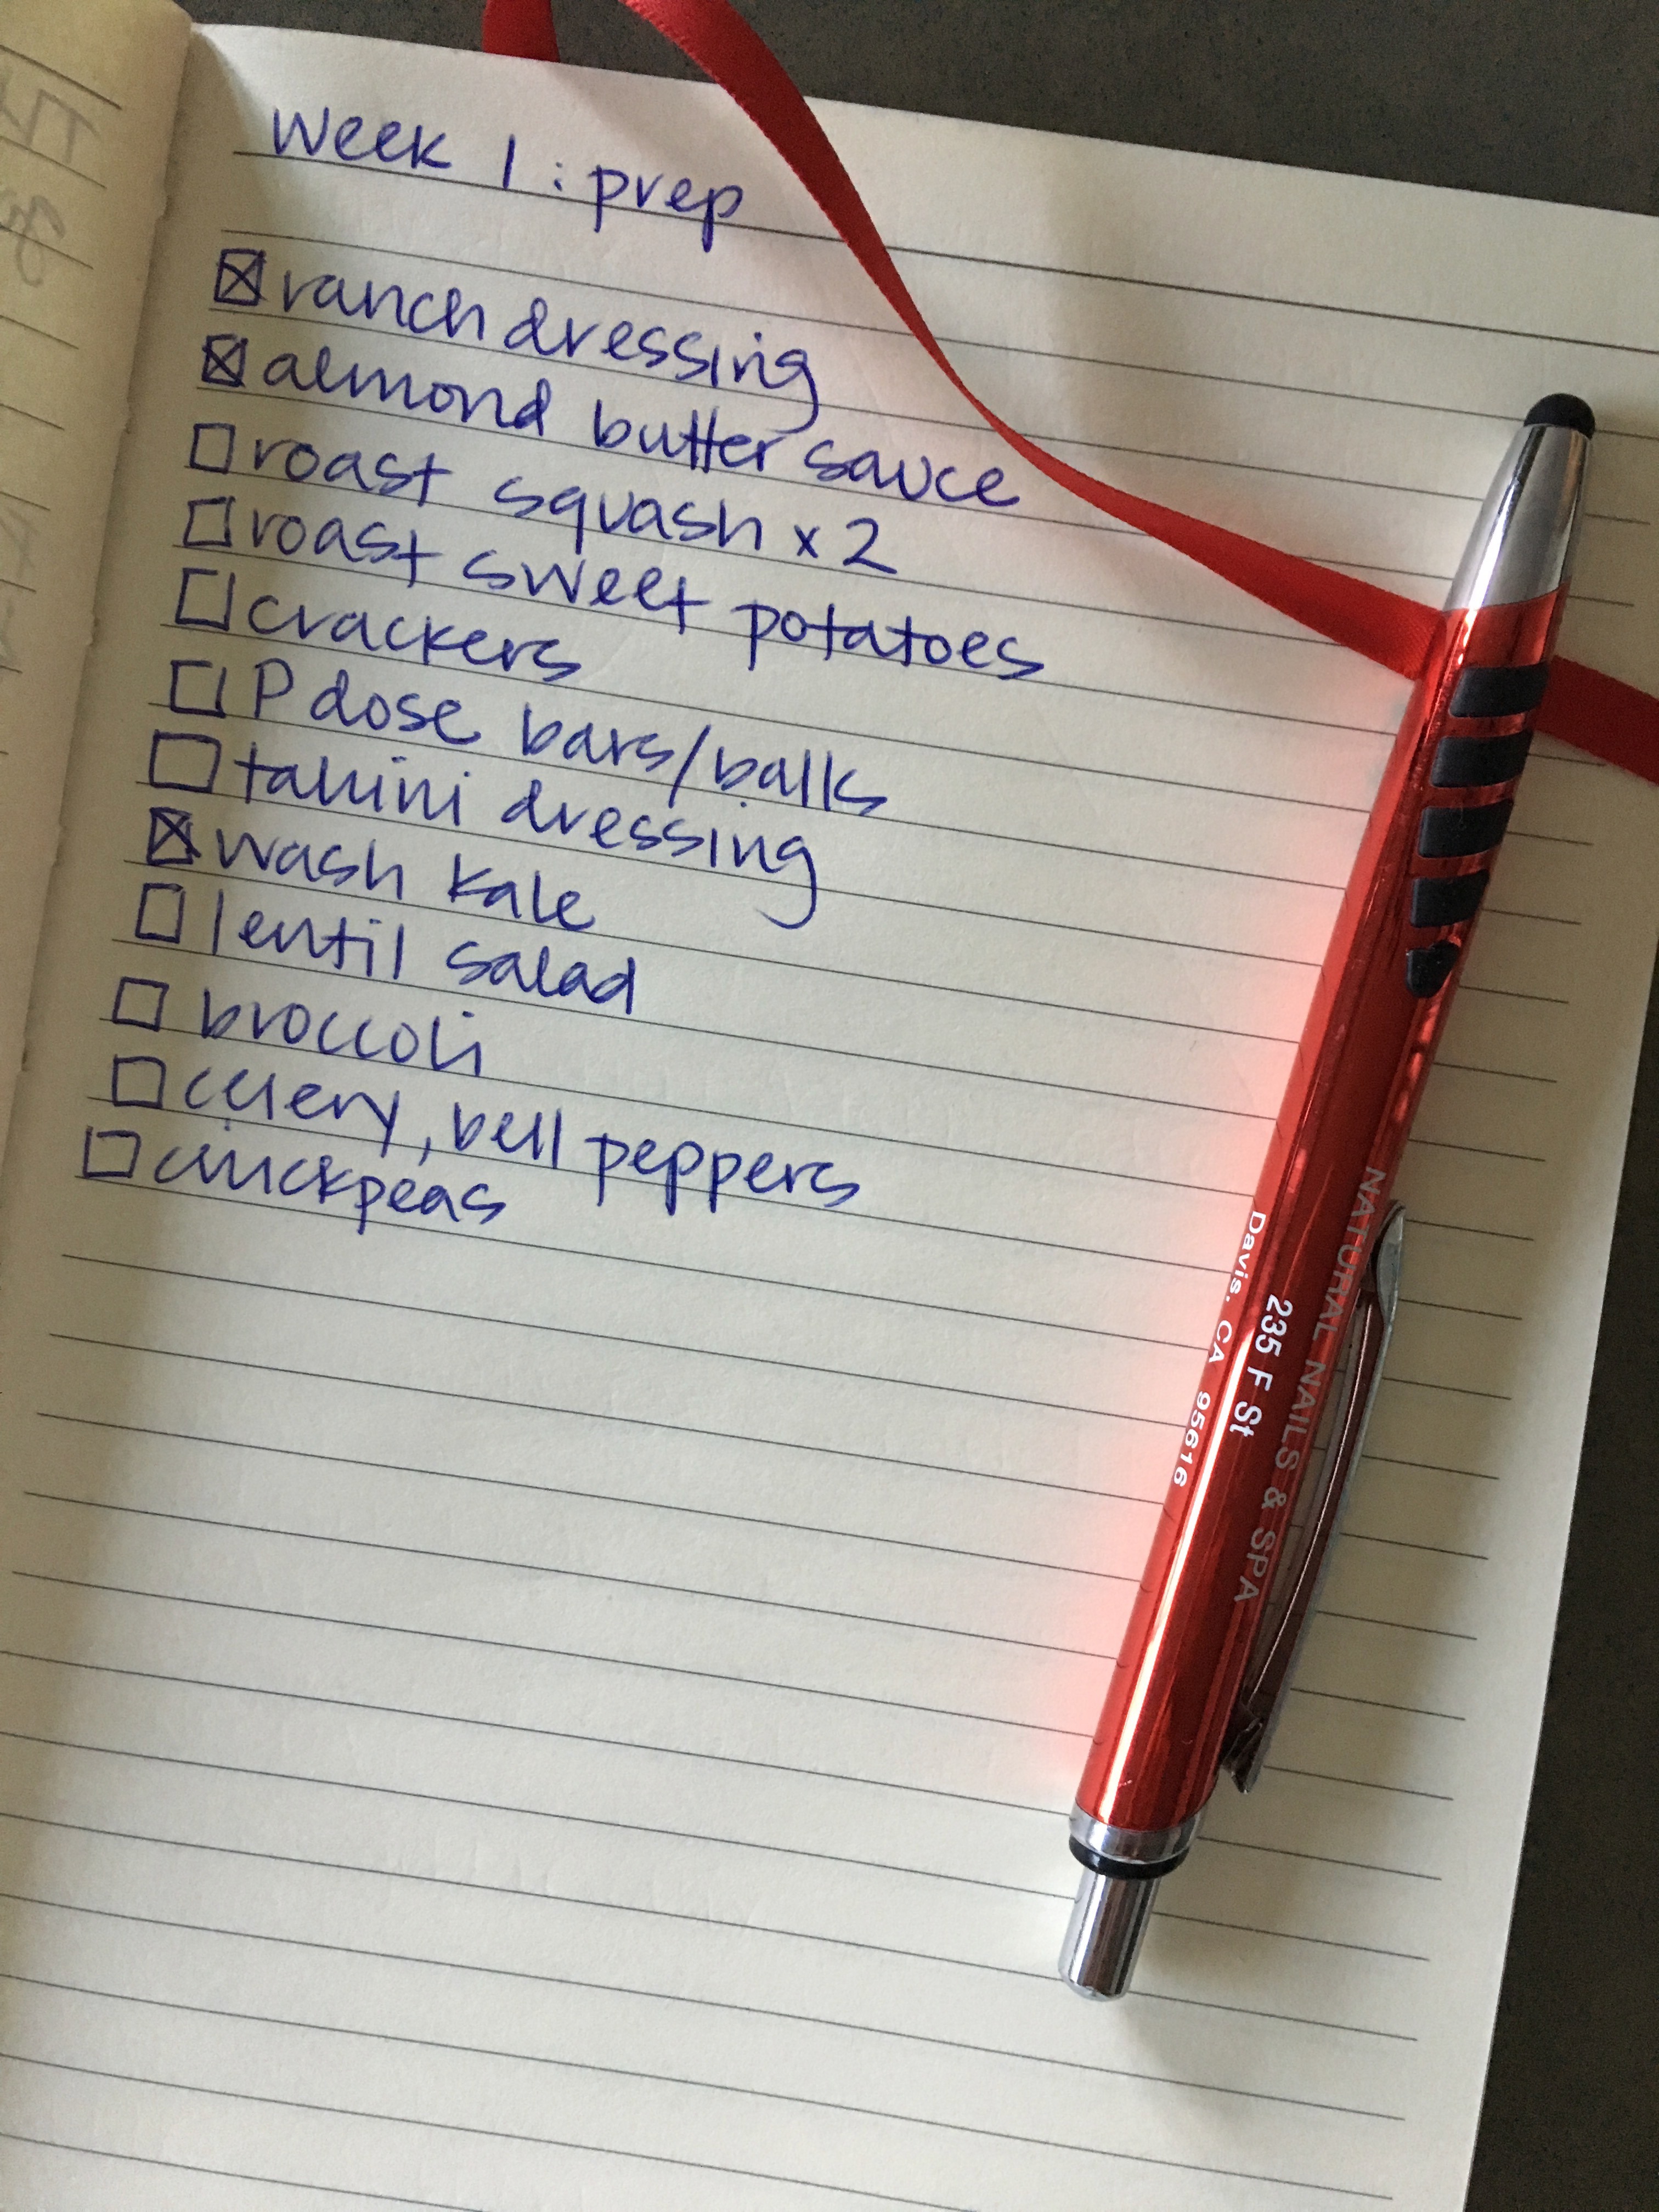 Week 1 : prep
☒ ranch dressing
☒ almond butter sauce
☐ roast squash x 2
☐ roast sweet potatoes
☐ crackers
☐ P dose bars/balls
☐ tahini dressing
☒ wash kale
☐ lentil salad
☐ broccoli
☐ celery, bell peppers
☐ chickpeas
NATURAL NAILS & SPA
235 F St
Davis, CA 95616